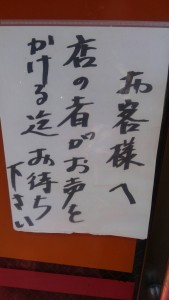 お客様へ
店の者がお声を
かける迄お待ち
下さい